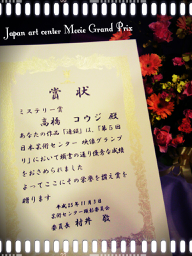 Japan art center Movie Grand Prix
賞状
ミステリー賞
高橋 コウジ 殿
あなたの作品「連鎖」は、「第5回
日本芸術センター 映像グランプ
リ」において頭書の通り優秀な成績
をおさめられました
よってここにその栄誉を讃え賞を
贈ります
平成25年11月3日
芸術センター
委員長 村井 敬